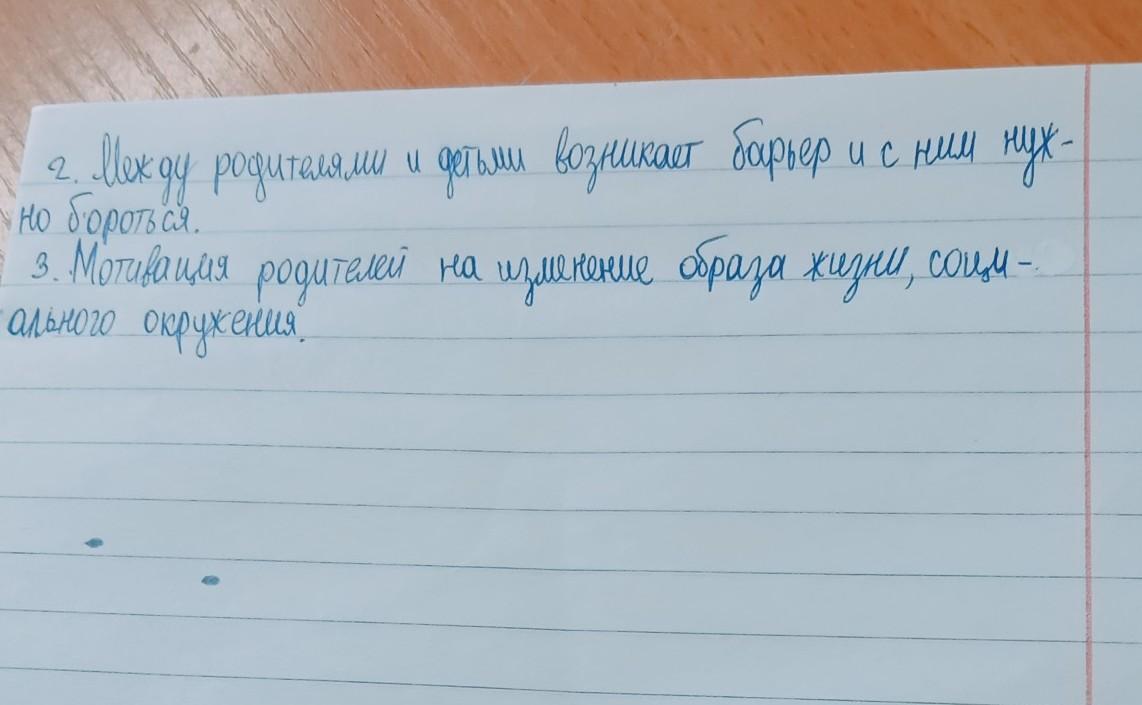 2. Между родителями и детьми возникает барьер и с ним нуж-
но бороться.
3. Мотивация родителей на изменение образа жизни, соци-
ального окружения.